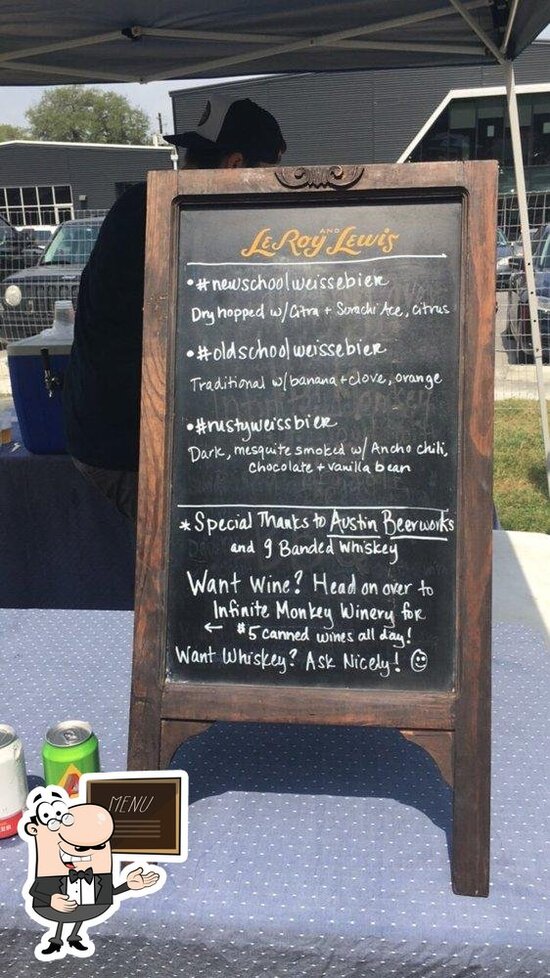 LeRoy AND Lewis
• #newschoolweissebier
Dry hopped w/Citra + Sorachi Ace, citrus
• #oldschoolweissebier
Traditional w/banana + clove, orange
• #rustyweissbier
Dark, mesquite smoked w/ Ancho chili,
chocolate + vanilla bean
* Special Thanks to Austin Beerworks
and 9 Banded Whiskey
Want Wine? Head on over to
Infinite Monkey Winery for
← $5 canned wines all day!
Want Whiskey? Ask Nicely! ☺
MENU